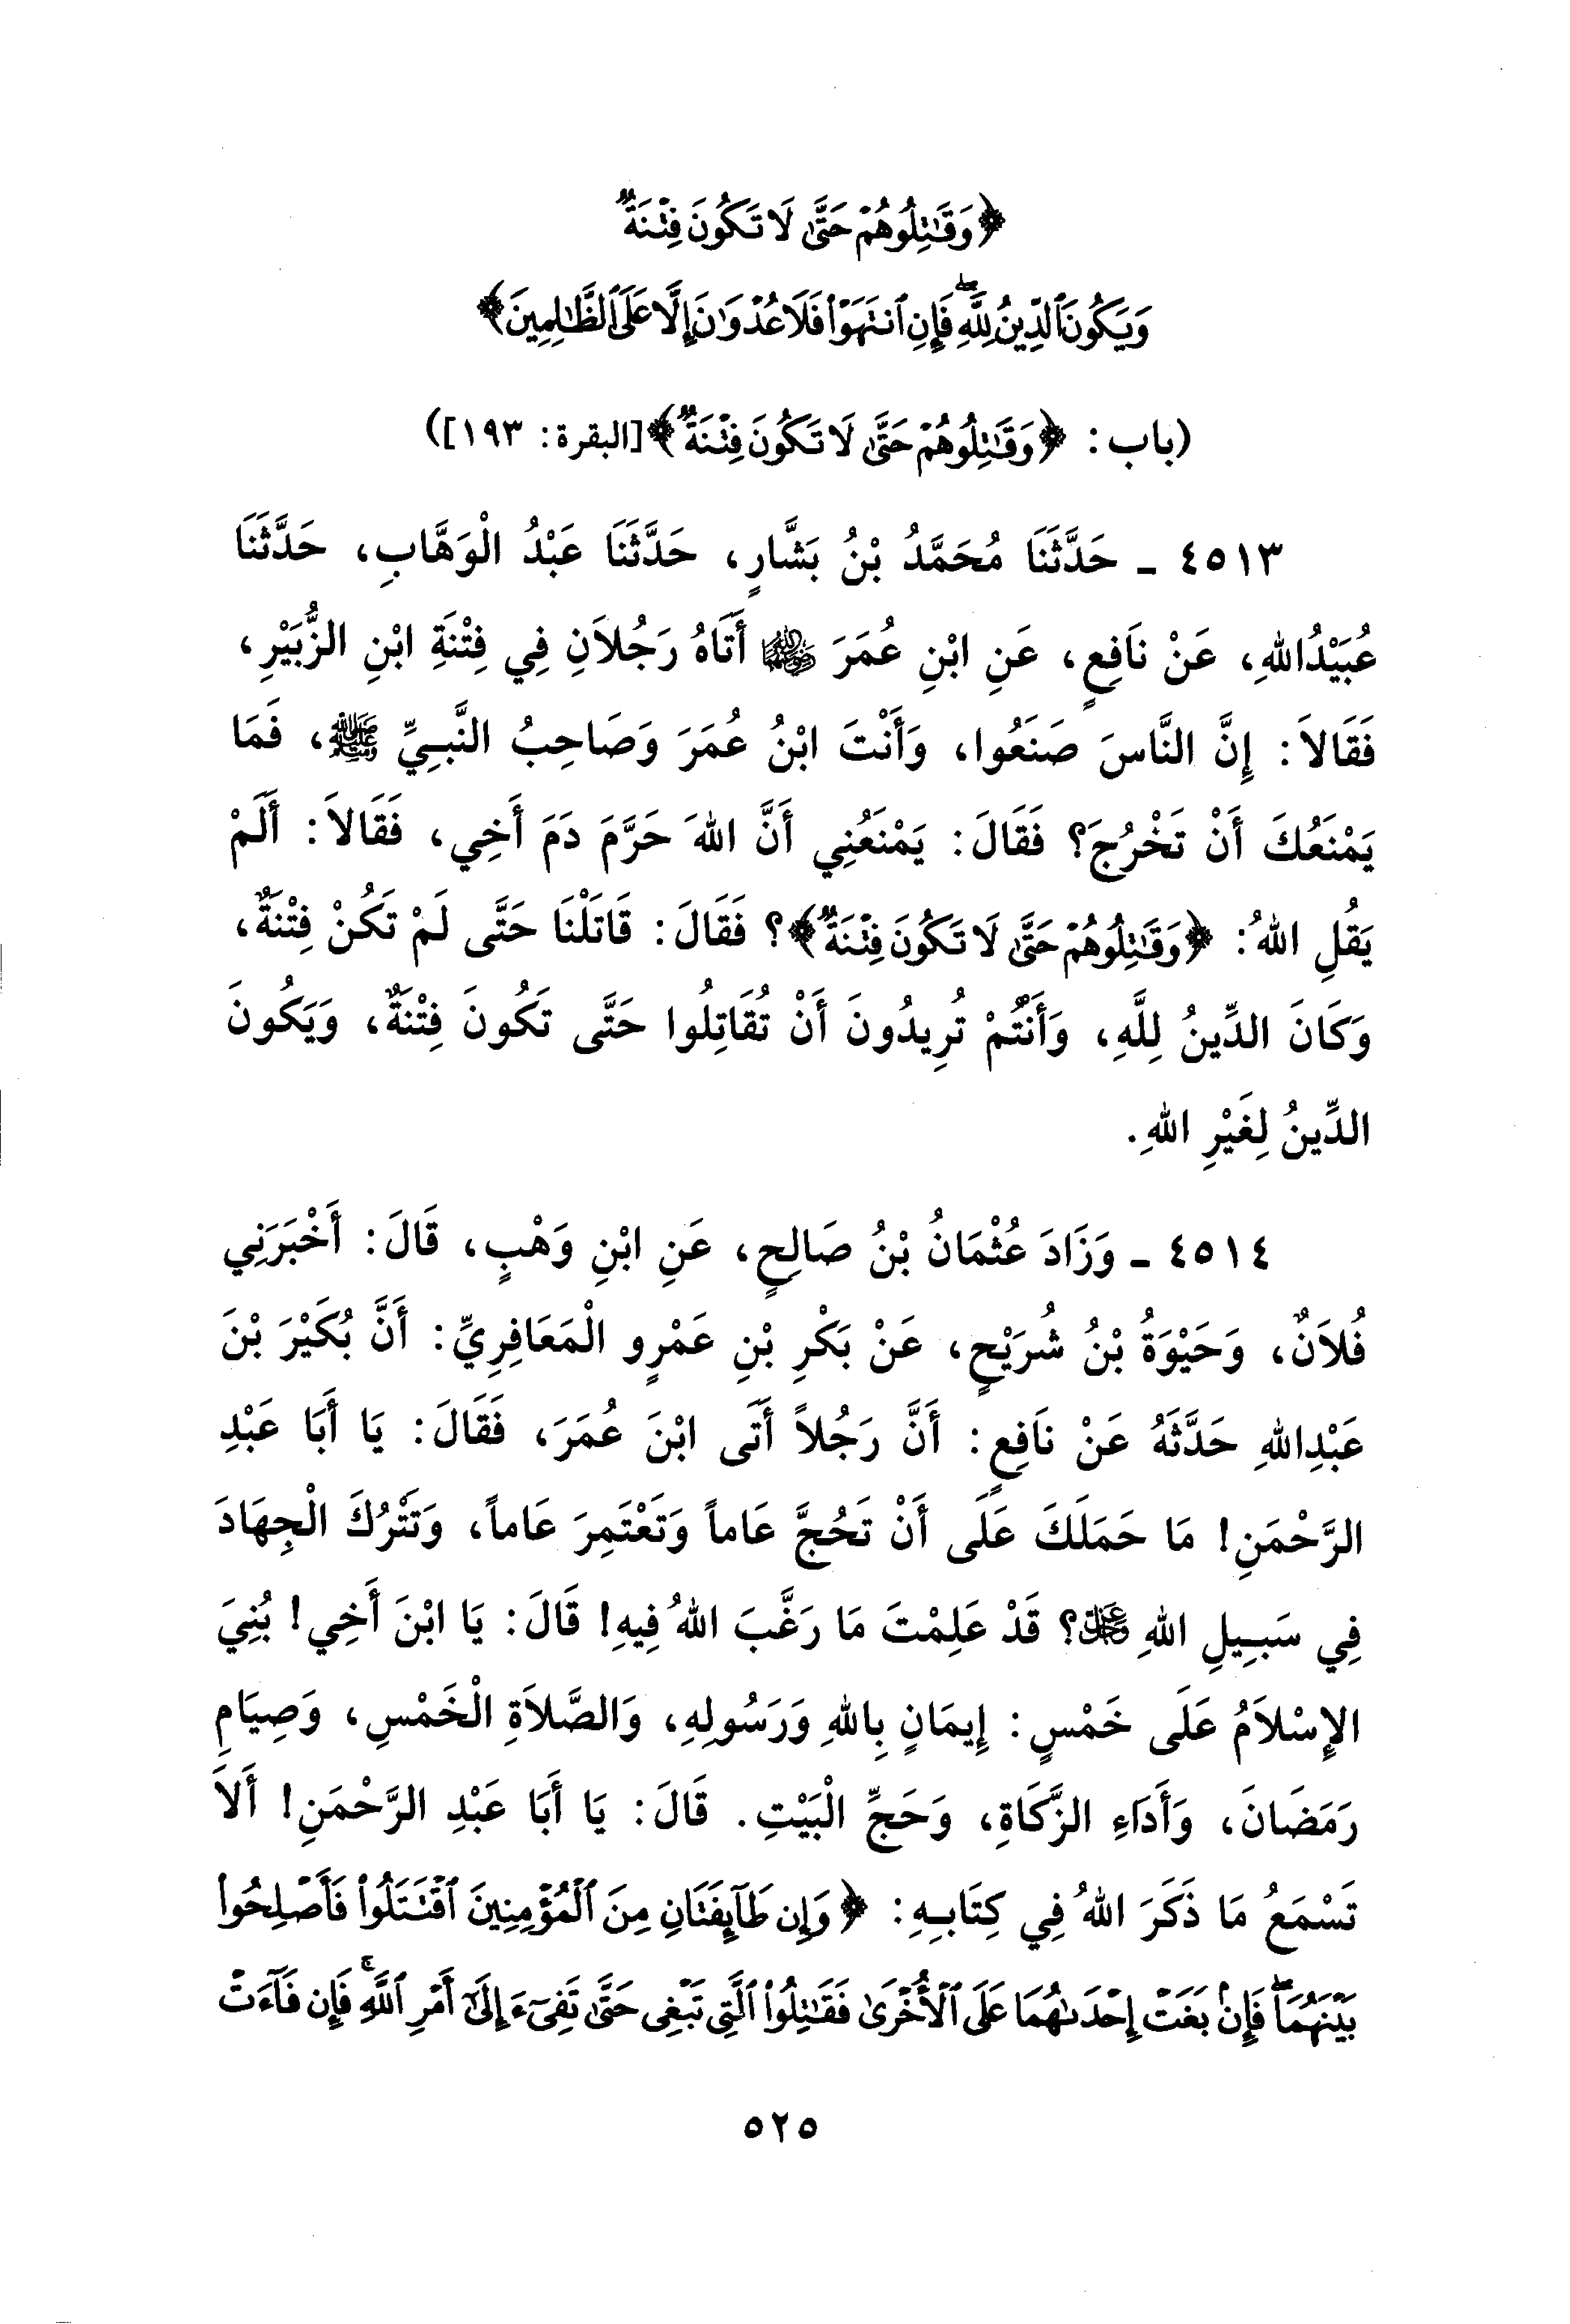 ﴿وَقَٰتِلُوهُمۡ حَتَّىٰ لَا تَكُونَ فِتۡنَةٞ
وَيَكُونَ ٱلدِّينُ لِلَّهِۖ فَإِنِ ٱنتَهَوۡاْ فَلَا عُدۡوَٰنَ إِلَّا عَلَى ٱلظَّٰلِمِينَ﴾
(باب: ﴿وَقَٰتِلُوهُمۡ حَتَّىٰ لَا تَكُونَ فِتۡنَةٞ﴾ [البقرة: ١٩٣])
٤٥١٣ ـ حَدَّثَنَا مُحَمَّدُ بْنُ بَشَّارٍ، حَدَّثَنَا عَبْدُ الْوَهَّابِ، حَدَّثَنَا
عُبَيْدُاللهِ، عَنْ نَافِعٍ، عَنِ ابْنِ عُمَرَ ﵄ أَتَاهُ رَجُلاَنِ فِي فِتْنَةِ ابْنِ الزُّبَيْرِ،
فَقَالاَ: إِنَّ النَّاسَ صَنَعُوا، وَأَنْتَ ابْنُ عُمَرَ وَصَاحِبُ النَّبِيِّ ﷺ، فَمَا
يَمْنَعُكَ أَنْ تَخْرُجَ؟ فَقَالَ: يَمْنَعُنِي أَنَّ اللهَ حَرَّمَ دَمَ أَخِي، فَقَالاَ: أَلَمْ
يَقُلِ اللهُ: ﴿وَقَٰتِلُوهُمۡ حَتَّىٰ لَا تَكُونَ فِتۡنَةٞ﴾؟ فَقَالَ: قَاتَلْنَا حَتَّى لَمْ تَكُنْ فِتْنَةٌ،
وَكَانَ الدِّينُ لِلَّهِ، وَأَنْتُمْ تُرِيدُونَ أَنْ تُقَاتِلُوا حَتَّى تَكُونَ فِتْنَةٌ، وَيَكُونَ
الدِّينُ لِغَيْرِ اللهِ.
٤٥١٤ ـ وَزَادَ عُثْمَانُ بْنُ صَالِحٍ، عَنِ ابْنِ وَهْبٍ، قَالَ: أَخْبَرَنِي
فُلاَنٌ، وَحَيْوَةُ بْنُ شُرَيْحٍ، عَنْ بَكْرِ بْنِ عَمْرٍو الْمَعَافِرِيِّ: أَنَّ بُكَيْرَ بْنَ
عَبْدِاللهِ حَدَّثَهُ عَنْ نَافِعٍ: أَنَّ رَجُلاً أَتَى ابْنَ عُمَرَ، فَقَالَ: يَا أَبَا عَبْدِ
الرَّحْمَنِ! مَا حَمَلَكَ عَلَى أَنْ تَحُجَّ عَاماً وَتَعْتَمِرَ عَاماً، وَتَتْرُكَ الْجِهَادَ
فِي سَبِيلِ اللهِ ﷿؟ قَدْ عَلِمْتَ مَا رَغَّبَ اللهُ فِيهِ! قَالَ: يَا ابْنَ أَخِي! بُنِيَ
الإِسْلاَمُ عَلَى خَمْسٍ: إِيمَانٍ بِاللهِ وَرَسُولِهِ، وَالصَّلاَةِ الْخَمْسِ، وَصِيَامِ
رَمَضَانَ، وَأَدَاءِ الزَّكَاةِ، وَحَجِّ الْبَيْتِ. قَالَ: يَا أَبَا عَبْدِ الرَّحْمَنِ! أَلاَ
تَسْمَعُ مَا ذَكَرَ اللهُ فِي كِتَابِهِ: ﴿وَإِن طَآئِفَتَانِ مِنَ ٱلۡمُؤۡمِنِينَ ٱقۡتَتَلُواْ فَأَصۡلِحُواْ
بَيۡنَهُمَاۖ فَإِنۢ بَغَتۡ إِحۡدَىٰهُمَا عَلَى ٱلۡأُخۡرَىٰ فَقَٰتِلُواْ ٱلَّتِي تَبۡغِي حَتَّىٰ تَفِيٓءَ إِلَىٰٓ أَمۡرِ ٱللَّهِۚ فَإِن فَآءَتۡ
٥٢٥